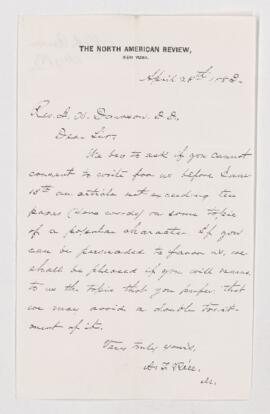 THE NORTH AMERICAN REVIEW,
NEW YORK.
April 28th, 188
Rev. J. W. Dawson, D.D.
Dear Sir,
We beg to ask if you cannot
consent to write for us before June
15th an article not exceeding ten
pages (4000 words) on some topic
of a popular character. If you
can be persuaded to favor us, we
shall be pleased if you will name
to us the topic that you prefer, that
we may avoid a double treat-
ment of it.
Very truly yours,
A. T. Rice.